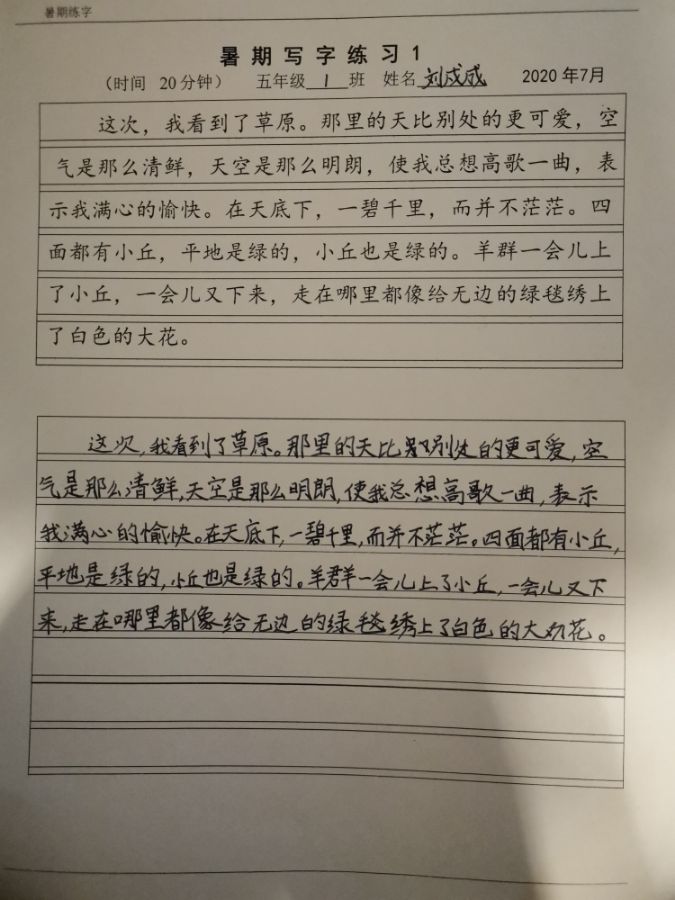 暑期练字
暑期写字练习1
（时间 20分钟） 五年级 1 班 姓名 刘成成 2020年7月
这次，我看到了草原。那里的天比别处的更可爱，空
气是那么清鲜，天空是那么明朗，使我总想高歌一曲，表
示我满心的愉快。在天底下，一碧千里，而并不茫茫。四
面都有小丘，平地是绿的，小丘也是绿的。羊群一会儿上
了小丘，一会儿又下来，走在哪里都像给无边的绿毯绣上
了白色的大花。
这次,我看到了草原。那里的天比别处的更可爱,空
气是那么清鲜,天空是那么明朗,使我总想高歌一曲,表示
我满心的愉快。在天底下,一碧千里,而并不茫茫。四面都有小丘,
平地是绿的,小丘也是绿的。羊群一会儿上了小丘,一会儿又下
来,走在哪里都像给无边的绿毯绣上了白色的大花。